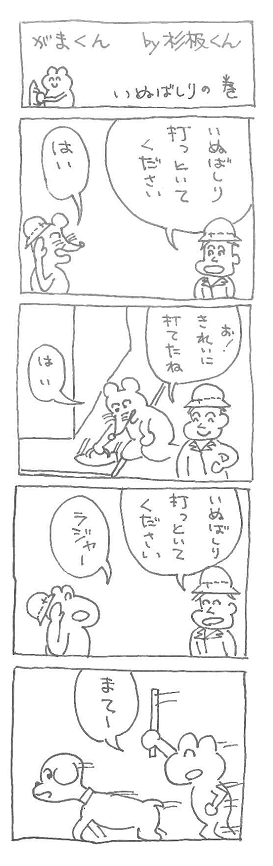 がまくん by杉板くん
いぬばしりの巻
いぬばしり
打っといて
ください
はい
お！
きれいに
打てたね
はい
いぬばしり
打っといて
ください
ラジャー
まてー